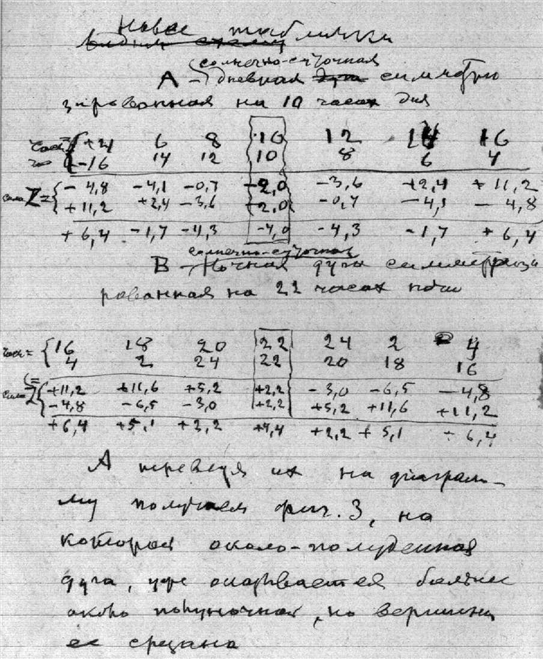 Новые таблички
солнечно-суточная
А - дневная дуга симметри
зированная на 10 часах дня
+4 6 8 10 12 14 16
-16 14 12 10 8 6 4
Z = -4,8 -4,1 -0,7 -2,0 -3,6 +2,4 +11,2
+11,2 +2,4 -3,6 -2,0 -0,7 -4,1 -4,8
+6,4 -1,7 -4,3 -4,0 -4,3 -1,7 +6,4
солнечно-суточная
В - Ночная дуга симметризи
рованная на 22 часах ночи
16 18 20 22 24 2 4
4 2 24 22 20 18 16
+11,2 +11,6 +5,2 +2,2 -3,0 -6,5 -4,8
Z -4,8 -6,5 -3,0 +2,2 +5,2 +11,6 +11,2
+6,4 +5,1 +2,2 +4,4 +2,2 +5,1 +6,4
А переведя их на диаграм-
му получаем фиг. 3, на
которой около-полуденная
дуга, уже оказывается более
около полуночная, но вершина
ее срезана